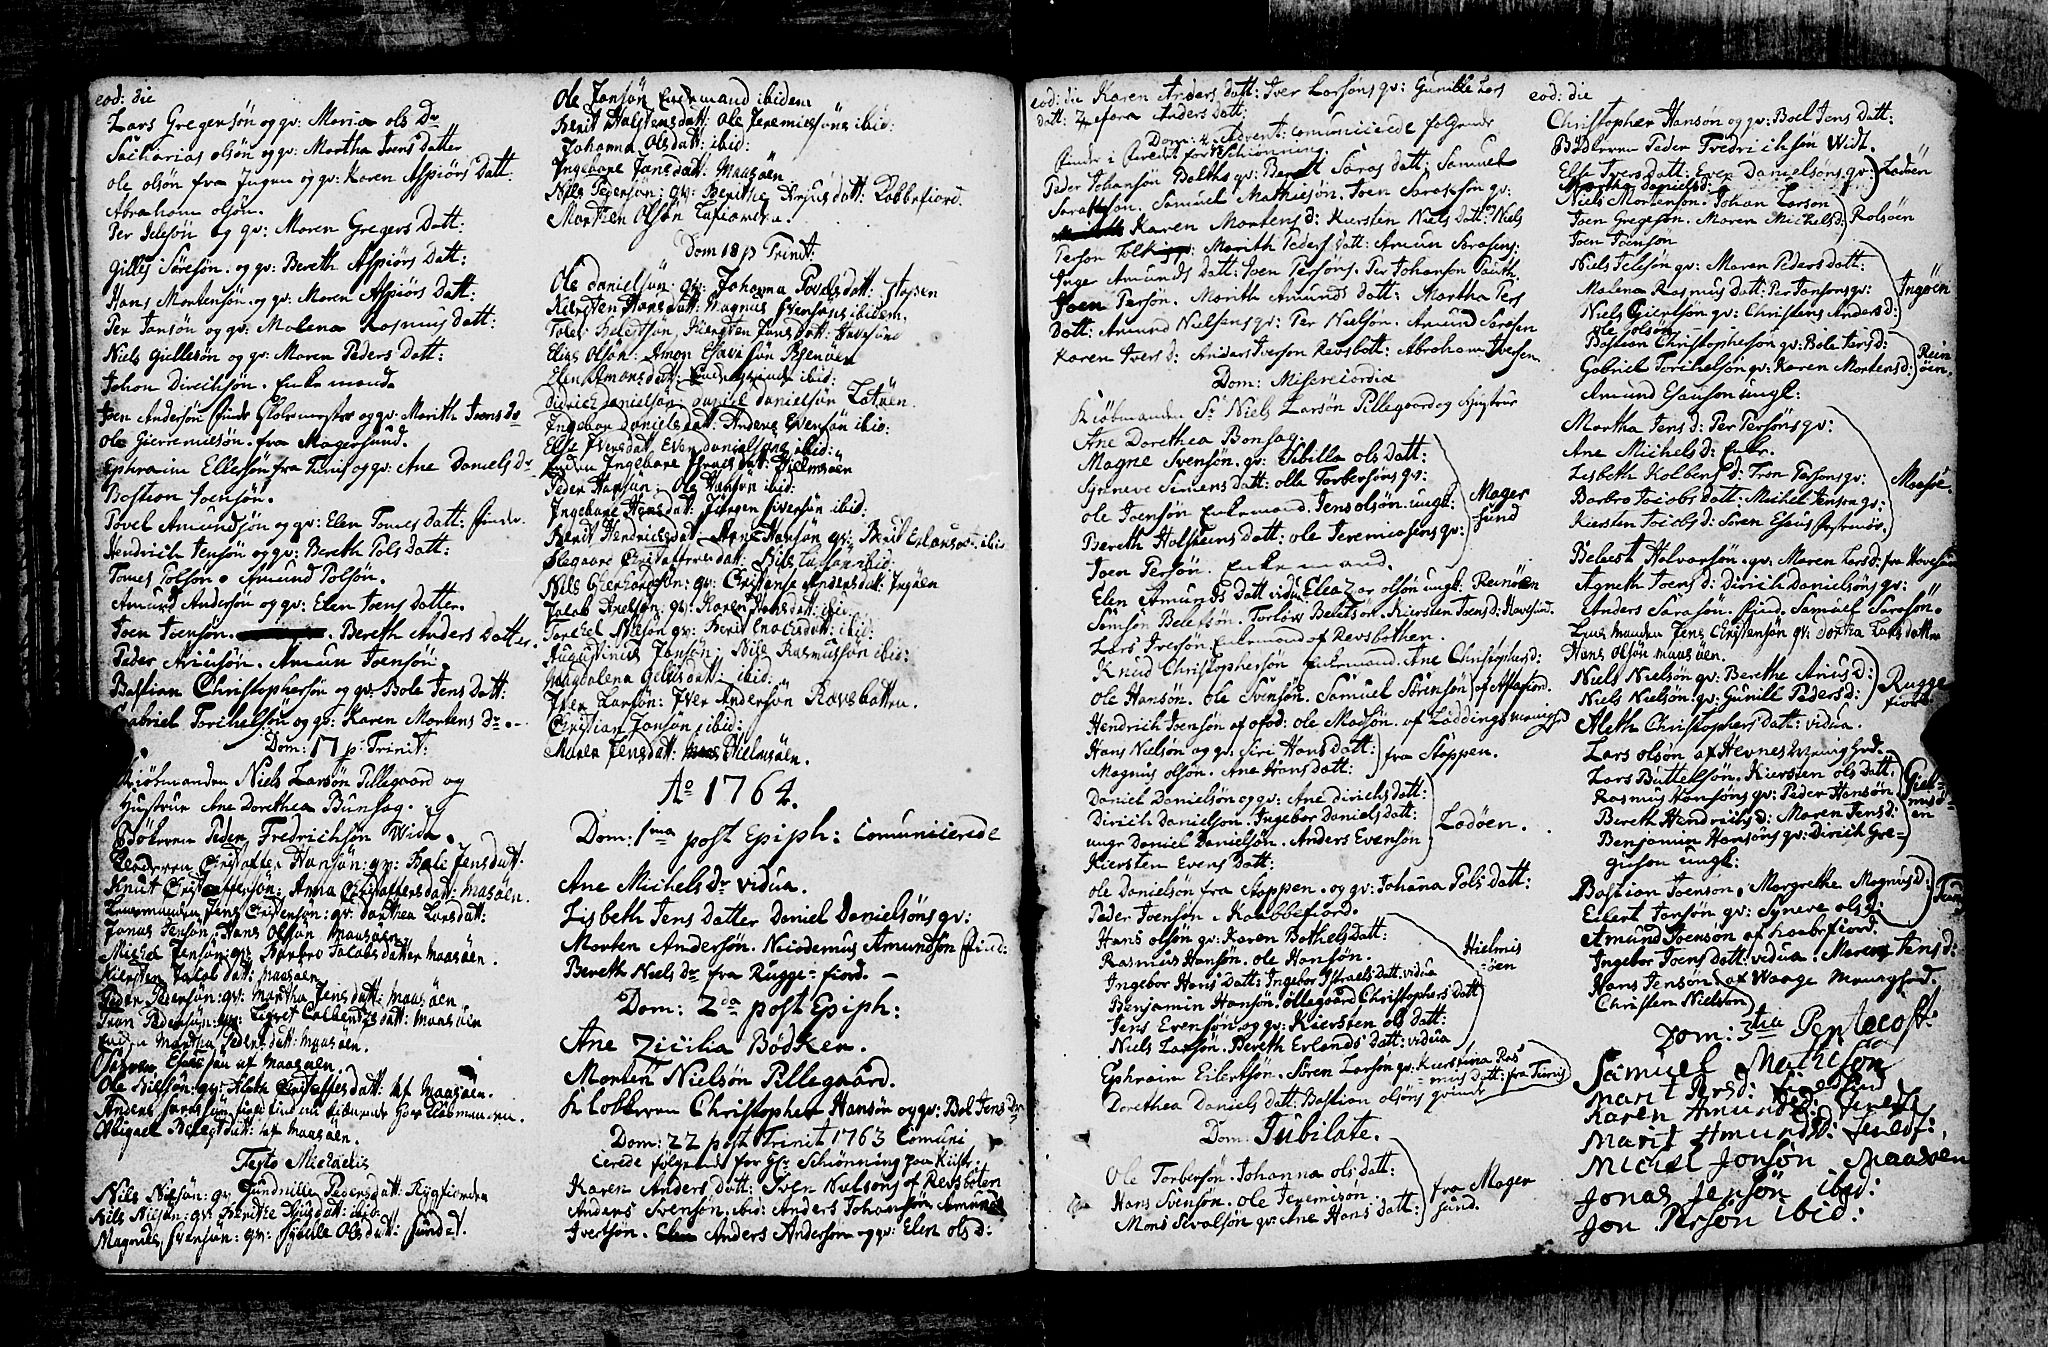 eod: die
Lars Gregersön og qv: Maria ols Dr
Sacharias olsön og qv: Martha Joens datter
ole olsön fra Ingen og qv: Karen Aspiörs Datt:
Abraham olsön.
Per Jelesön og qv: Maren Gregers Datt:
Gilles Söresön. og qv: Bereth Aspiörs Datt:
Hans Mortensön. og qv: Maren Aspiörs Datt:
Per Jansön og qv: Malena Rasmus datt:
Niels Giellesön og qv: Maren Peders datt:
Johan Dirichsön. Enkemand.
Joen Andersön og qv: Marith Joens dr
ole Gierremiesön. fra Magersund.
Ephraim Ellersön fra Tunes og qv: Ane Daniels dr
Bastian Joensön.
Povel Amundsön og qv: Elen Tomes datt: finder.
Hendrich Jensön og qv: Bereth Pols datt:
Tomes Polsön. Amund Polsön.
Amund Andersön og qv: Elen Joens datter.
Joen Joensön. Bereth Anders datter.
Peder Ariusön. Amun Joensön.
Bastian Christophersön og qv: Bole Jens datt:
Gabriel Torchelsön og qv: Karen Mortens dr.
Dom: 17 p: Trinit:
Kiöbmanden Niels Larsön Pillegaard og
Hustrue Ane Dorethea Bunsag.
Bödkeren Peder Fredrichsön Widt.
Christoffer Hansön: qv: Bole Jensdatt:
Knut Christoffersön: Anna Christoffersdatt: Masöen.
Lensmanden Jens Christensön: qv: Dorthea Larsdatt:
Jonas Jensön: Hans Olsön Maasöen.
Michel Jensön: qv: Barbro Jacobs datter Maasöen.
Kiersten Jacob datt: Maasöen
Peder Pedersön: qv: Martha Jens datt: Maasöen
Tron Pedersön: qv: datt: Maasöen
Enken Martha Peders datt: Maasöen.
Sören Esaiesön af Maasöen.
Ole Nielsön: qv: Aleth Christoffersdatt: af Maasöen.
Anders Sarasön Kiöbmanden.
Abigael Belestdatt: af Maasöen.
Festo Michaelis
Nils Nilsön: qv: Gundille Pedersdatt: Rygfiorden
Nils Nilsön: qv: Berithe datt: ibid:
Magnus Svensön: qv: Sibille Olsdatt: Sundet.
Ole Jansön Enkemand ibidem
Berit Halstensdatt: Ole Jeremiesöns ibid:
Johanna Olsdatt: ibid:
Ingebore Jansdatt: Maasöen
Nils Pedersön: qv: Berithe Arjusdatt: Kobbefiord.
Morten Olsön Tufiorden.
Dom 18 p Trinit:
Ole Danielsön: qv: Johanna Povelsdatt: Stopen
Kiersten Hansdatt: Magnus Svensöns ibidem.
Toles Belestsön. Kiersten Jansdatt: Havesund
Elias Olsön: Amon Esaiesön Renöen
Elen Amonsdatt: ibid:
Didrich Danielsön: Daniel Danielsön Latöen.
Ingebor Danielsdatt: Anders Evensön ibid:
Else Iversdatt: Even Danielsöns ibid:
Enken Ingebore datt: Hielmsöen
Peder Hansön: Ole Hansön ibid:
Ingebore Hansdatt: Jörgen Iversön ibid:
Berit Hendrichsdatt: Arne Hansön qv: Berit Erlandsdatt: ibid
Olegaare Christoffersdatt: Nils ibid:
Nils qv: Christense Andersdatt: Ingöen
Jacob Axelsön: qv: Karen Hansdatt: ibid:
Torchel Nilsön qv: Berit datt: ibid:
Augustinus Jansön: Nils Rasmussön ibid:
Magdalena datt: ibid:
Iver Larsön: Iver Andersön Ravebotten.
Christian Jonsön ibid:
Maren Jensdatt: Hielmsöen.
Ao 1764.
Dom: 1ma post Epiph: Comunicerede
Ane Michels dr vidua.
Lisbeth Jens datter Daniel Danielsöns qv:
Morten Andersön. Nicodemus Amundsön find:
Bereth Niels dr fra Rugge-fiord. –
Dom: 2da post Epiph:
Ane Zicilia Bödker.
Morten Nielsön Pillegaard.
Klokkeren Christopher Hansön og qv: Bol Jens dr
Dom: 22 post Trinit 1763 Comuni
cerede følgende for Hr Schiönning paa Kistr.
Karen Anders Datt: Sven Nielsöns af Revsboten
Anders Svensön. ibid: Anders Johansön Amund
Ivertsön. Anders Andersön og qv: Elen ols d:
eod: die Karen Anders datt: Iver Larsöns qv: Gunille Lars
datt: Zefora Anders datt:
Dom: 4. Advent: comunicerede følgende
finder i Qeredt for Hr Schiönning.
Peder Johansön Qv: Beret Saras datt: Samuel
Sarassön. Samuel Mathiesön. Joen Sarassön qv:
Karen Mortens d: Kiersten Niels datt: Niels
Person: Marith Peders datt: Amun Sarasens:
Inger Amunds datt: Joen Persöns. Per Johanson
Joen Persön. Marith Amunds datt: Martha Pers
Datt: Amund Nielsens qv: Per Nielsön. Amund Sarasen
Karen Ivers d: Anders Iverson Revsbott: Abraham Iversen
Dom: Misericordia
Kiöbmanden Sr Niels Larsön Pillegaard og Hustrue
Ane Dorethea Bonsag.
Magne Svensön. qv: Sibilla ols datt:
Synneve Simens datt: olle Torbersöns qv:
ole Joensön Enkemand. Jens olsön. ungk:
Bereth Holsteins datt: ole Jeremiesens qv:
Joen Persön. Enkemand.
Mager
sund
Elen Amunds datt vidua Eleazar olsön ungk. Renöen
Simson Belessön. Torlov Belessön. Kiersten Joens d: Havesund.
Lars Iversön Enkemand af Revsbotten.
Knud Christophersön Enkemand. Ane Christophers d:
ole Hansön. ole Svensön. Samuel Sörensön
Hendrich Joensön af ofjord: ole Madsön. af Loddings menighed
Hans Nielsön og qv: Siri Hans datt:
Magnus olsön. Ane Hans datt:
fra Stoppen.
Daniel Danielsön og qv: Ane dirichs datt:
Dirich Danielsön. Ingebor Daniels datt:
ungr Daniel Danielsön. Anders Evensön
Kiersten Evens Datt:
Ladöen.
ole Danielsön fra Stoppen. og qv: Johana Pols datt:
Peder Joensön i Kaabbefiord.
Hans olsön qv: Karen Bothels datt:
Rasmus Hansön. ole Hansön.
Ingebor Hans Datt: Ingebor Israels Datt: vidua
Benjamin Hansön. öllegaard Christophers datt
Jens Evensön og qv: Kiersten ols datt:
Niels Larsön. Bereth Erlands datt: vidua
Hielmis
öen
Ephraim Eilertsön. Sören Larsön qv: Kierstina Ras
mus datt: fra Tunes
Dorethea Daniels datt: Bastian olsöns qvinde
Dom: Jubilate.
Ole Torbersön. Johanna ols datt:
Hans Svensön. ole Jeremisön.
Mons Sivalsön qv: Ane Hans datt:
fra Mager
sund.
eod: die
Christopher Hansön og qv: Boel Jens datt:
Bödkeren Peder Fredrichsön Widt.
Else Ivers datt: Even Danielsöns qv:
Martha Daniels d:
Ladöen
Niels Mortensön. Johan Larson
Joen Gregerson. Maren Michels d:
Joen Joensön
Rolsöen
Niels Jelesön qv: Maren Peders datt:
Malena Rasmus datt: Per Jansöns qv:
Niels Giertsön qv: Christens Anders d:
ole Golsön
Ingöen
Bastian Christopherson qv: Bole Jens d:
Gabriel Torchelsön qv: Karen Mortens d:
Amund Esauson ungk:
Rein
öen.
Martha Jens d: Per Persöns qv:
Ane Michels d: Enke.
Lisbeth Kolbens d: Tron Persons qv:
Barbro Jacobs datt: Michel Jensön qv:
Kiersten Jacobs d: Sören Esaus
Maasöe.
Belest Halvorsön. qv: Maren Lars d: fra Havesund
Agneth Joens d: Dirich Danielsöns qv:
Anders Sarasön. find. Samuel Sarasön.
Lensmanden Jens Christensön qv: Dortha Larsdatter
Hans olsön maasöen.
Niels Nielsön qv: Berethe Arius d:
Niels Nielsön. qv: Gunille Peders d:
Rugge
fiord
Aleth Christophers datt: vidua.
Lars olsön af Hevnes menighed.
Lars Buttelsön. Kiersten ols datt.
Rasmus Hansöns qv: Peder Hansön
Bereth Hendrichs d: Maren Jens d:
Benjamin Hansöns qv: Dirich Gre-
gerson ungk:
Giel-
misö-
en
Bastian Joensön. Margrethe Magnus d:
Eilert Jansön qv: Syneve ols d:
Tunes
Amund Joensön af Kaabefiord.
Ingebor Joens datt: vidua. Maren Jens d:
Hans Jensön
Christen Nielsön
af Waage Menighed.
Dom: 3tia Pentecost:
Samuel Mathesön
Marit Pers d:
Karen Amunds d:
Marit Amunds d:
Michel Jonsön Maasöen
Jonas Jensön ibid:
Jon Persön ibid: